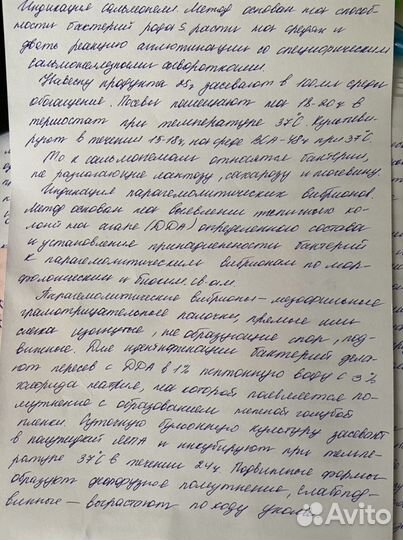 Индикация сальмонелл. Метод основан на способ-
ности бактерий рода S расти на средах и
давать реакцию агглютинации со специфическими
сальмонеллезными сыворотками.
Навеску продукта 25г засевают в 100мл среды
обогащения. Посевы помещают на 18-20ч в
термостат при температуре 37°С. Культиви-
руют в течении 15-18ч на среде ВСА-48ч при 37°С.
То к сальмонеллам относятся бактерии,
не разлагающие лактозу, сахарозу и мочевину.
Индикация парагемолитических вибрионов.
Метод основан на выявлении типичных ко-
лоний на агаре (ДДА) определенного состава
и установление принадлежности бактерий
к парагемолитическим вибрионам по мор-
фологическим и биохим. св-ам.
Парагемолитические вибрионы - мезофильные
грамотрицательные палочки, прямые или
слегка изогнутые, не образующие спор, под-
вижные. Для идентификации бактерий дела-
ют пересев с ДДА в 1% пептонную воду с 3%
хлорида натрия, на которой появляется по-
мутнение с образованием нежной голубой
пленки. Суточную бульонную культуру засевают
в полужидкий МПА и инкубируют при темпе-
ратуре 37°С в течении 24ч. Подвижные формы
образуют диффузное помутнение, слабопод-
вижные - вырастают по ходу укола
Avito